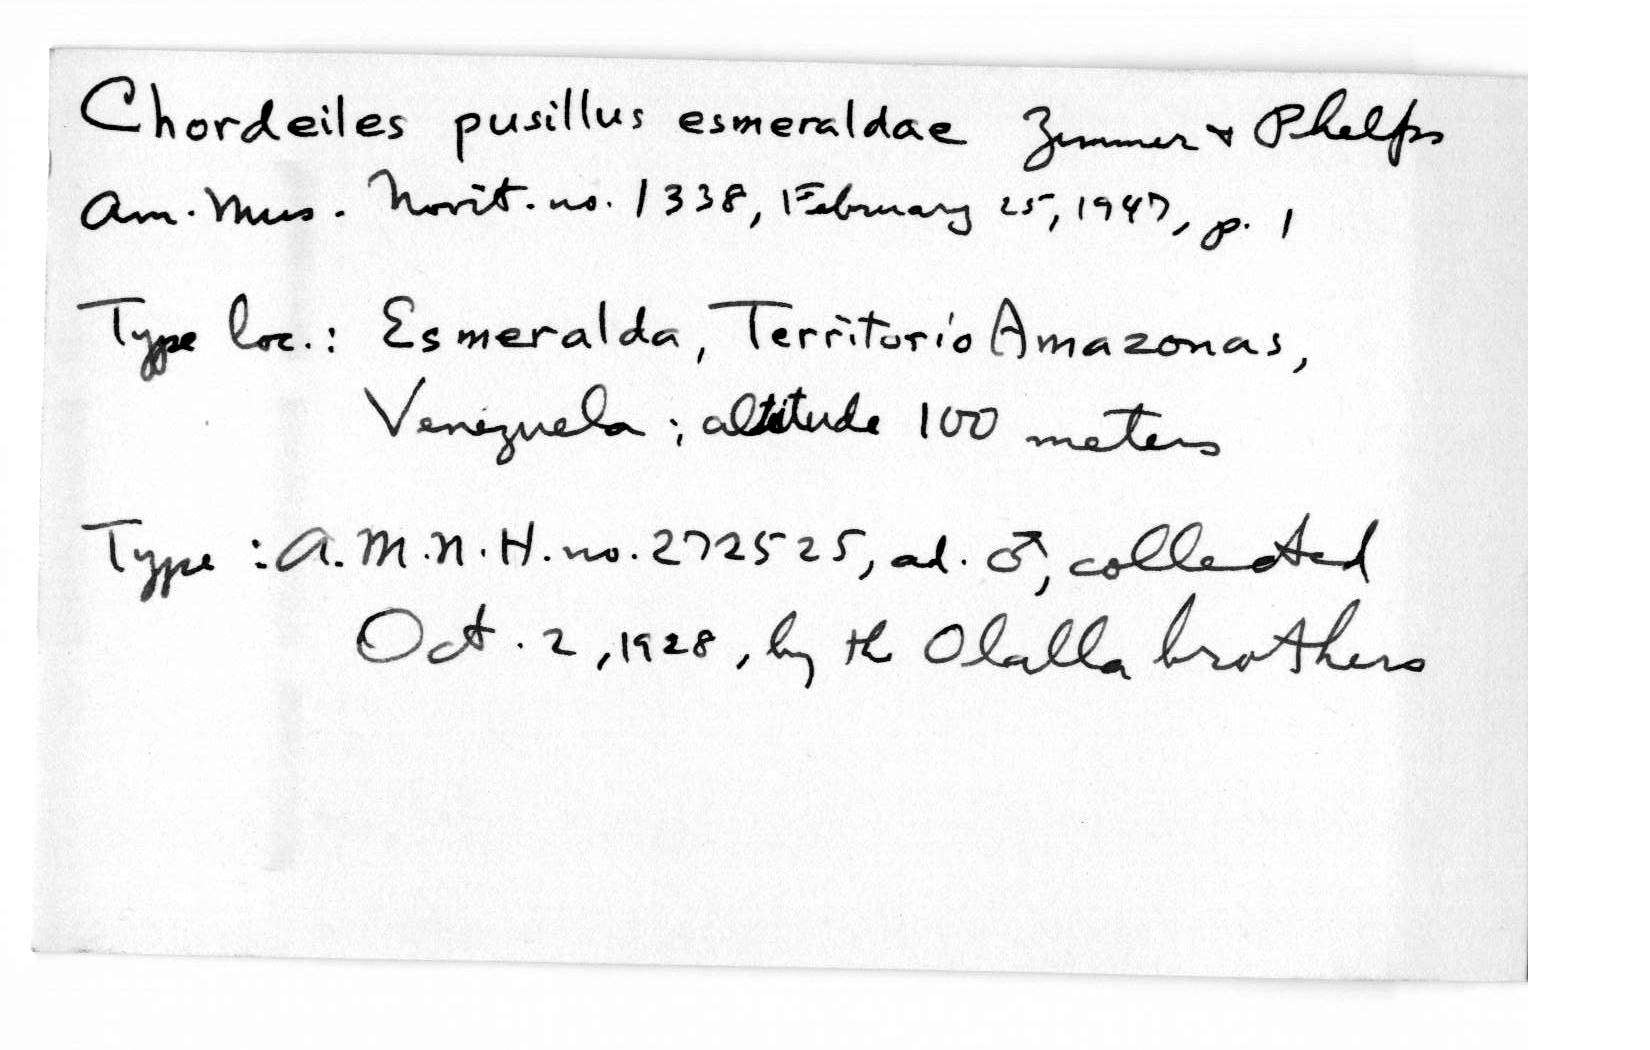 Chordeiles pusillus esmeraldae Zimmer & Phelps
Am. Mus. Novit. no. 1338, February 25, 1947, p. 1
Type loc.: Esmeralda, Territorio Amazonas,
Venezuela; altitude 100 meters
Type: A.M.N.H. no. 272525, ad. ♂, collected
Oct. 2, 1928, by the Olalla brothers